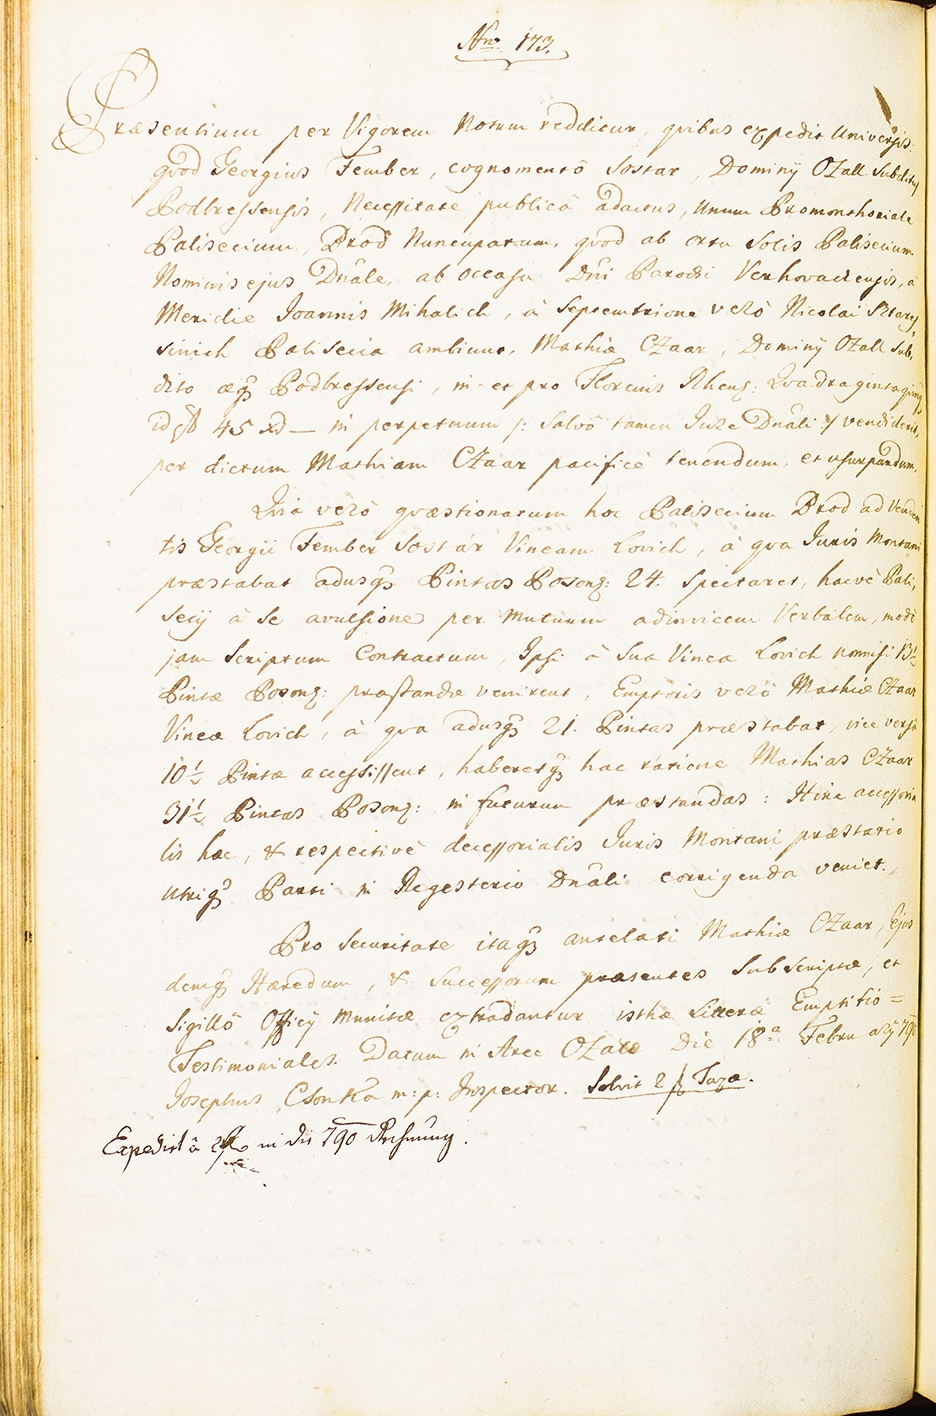 Nro. 173.
Præsentium per Vigorem Notum redditur, quibus expedit Universis
qvod Georgius Fember, cognomentô Sostar, Dominÿ Ozall Subditus
Podbressensis, Necessitate publicâ adactus, Unum Promonthoriale
Palisecium Brod Nuncupatum, qvod ab ortu Solis Palisecium
Nominis ejus Dnâle, ab occasu Dni Parochi Verhovacensis, à
Meridie Joannis Mihalich, à Septemtrione verò Nicolai
sinich Palisecia ambiunt, Mathiæ Czaar, Dominÿ Ozall Sub,
dito æqê Podbressensi, in et pro Florenis Rhens: Qvadraginta qinqê
id est 45 xd — in perpetuum /: Salvô tamen Jure Dnâli :/ vendiderit,
per dictum Mathiam Czaar pacificè tenendum, et usurpandum.
Qvia verò qvæstionatum hoc Palisecium Brod ad Venden
tis Georgii Fember Sostár Vineam Lovich, à qva Juris Montani
præstabat adusqê Pintas Posong: 24. Spectaret, hacvè Pali,
secÿ à se avulsione per mutuum adinvicem Verbalem, modò
jam Scriptum Contractum, Ipsi à Sua Vinea Lovich nonnisi 13½
Pintæ Posong: præstandæ venirent, Emptoris verò Mathiæ Czaar
Vineæ Lovich, à qva adusqê 21. Pintas præstabat, vice versa
10½ Pintæ accessissent, haberetqê hac ratione Mathias Czaar
31½ Pintas Posong: in futurum præstandas: Hinc accessoria
lis hæc, & respectivè decessorialis Juris Montani præstatio
utriqê Parti in Regesterio Dnâli corrigenda veniet.
Pro Securitate itaqê antelati Mathiæ Czaar, Ejus
demqê Hæredum, & Successorum præsentes Subscriptæ, et
Sigillô Officÿ munitæ extradantur isthæ Litteræ Emptitio=
Testimoniales. Datum in Arce Ozalÿ Die 18a Februarÿ 790
Josephus Csonka m:p: Inspector. Solvit 2 f Taxa.
Expedirt â 2 f in die 790 Rechnung.